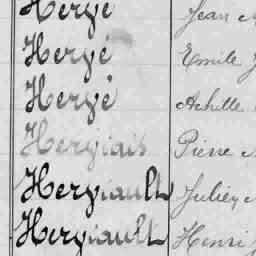 Hergé Jean
Hergé Emile
Hergé Achille
Hergiais Pierre
Hergiault Julien
Hergiault Henri